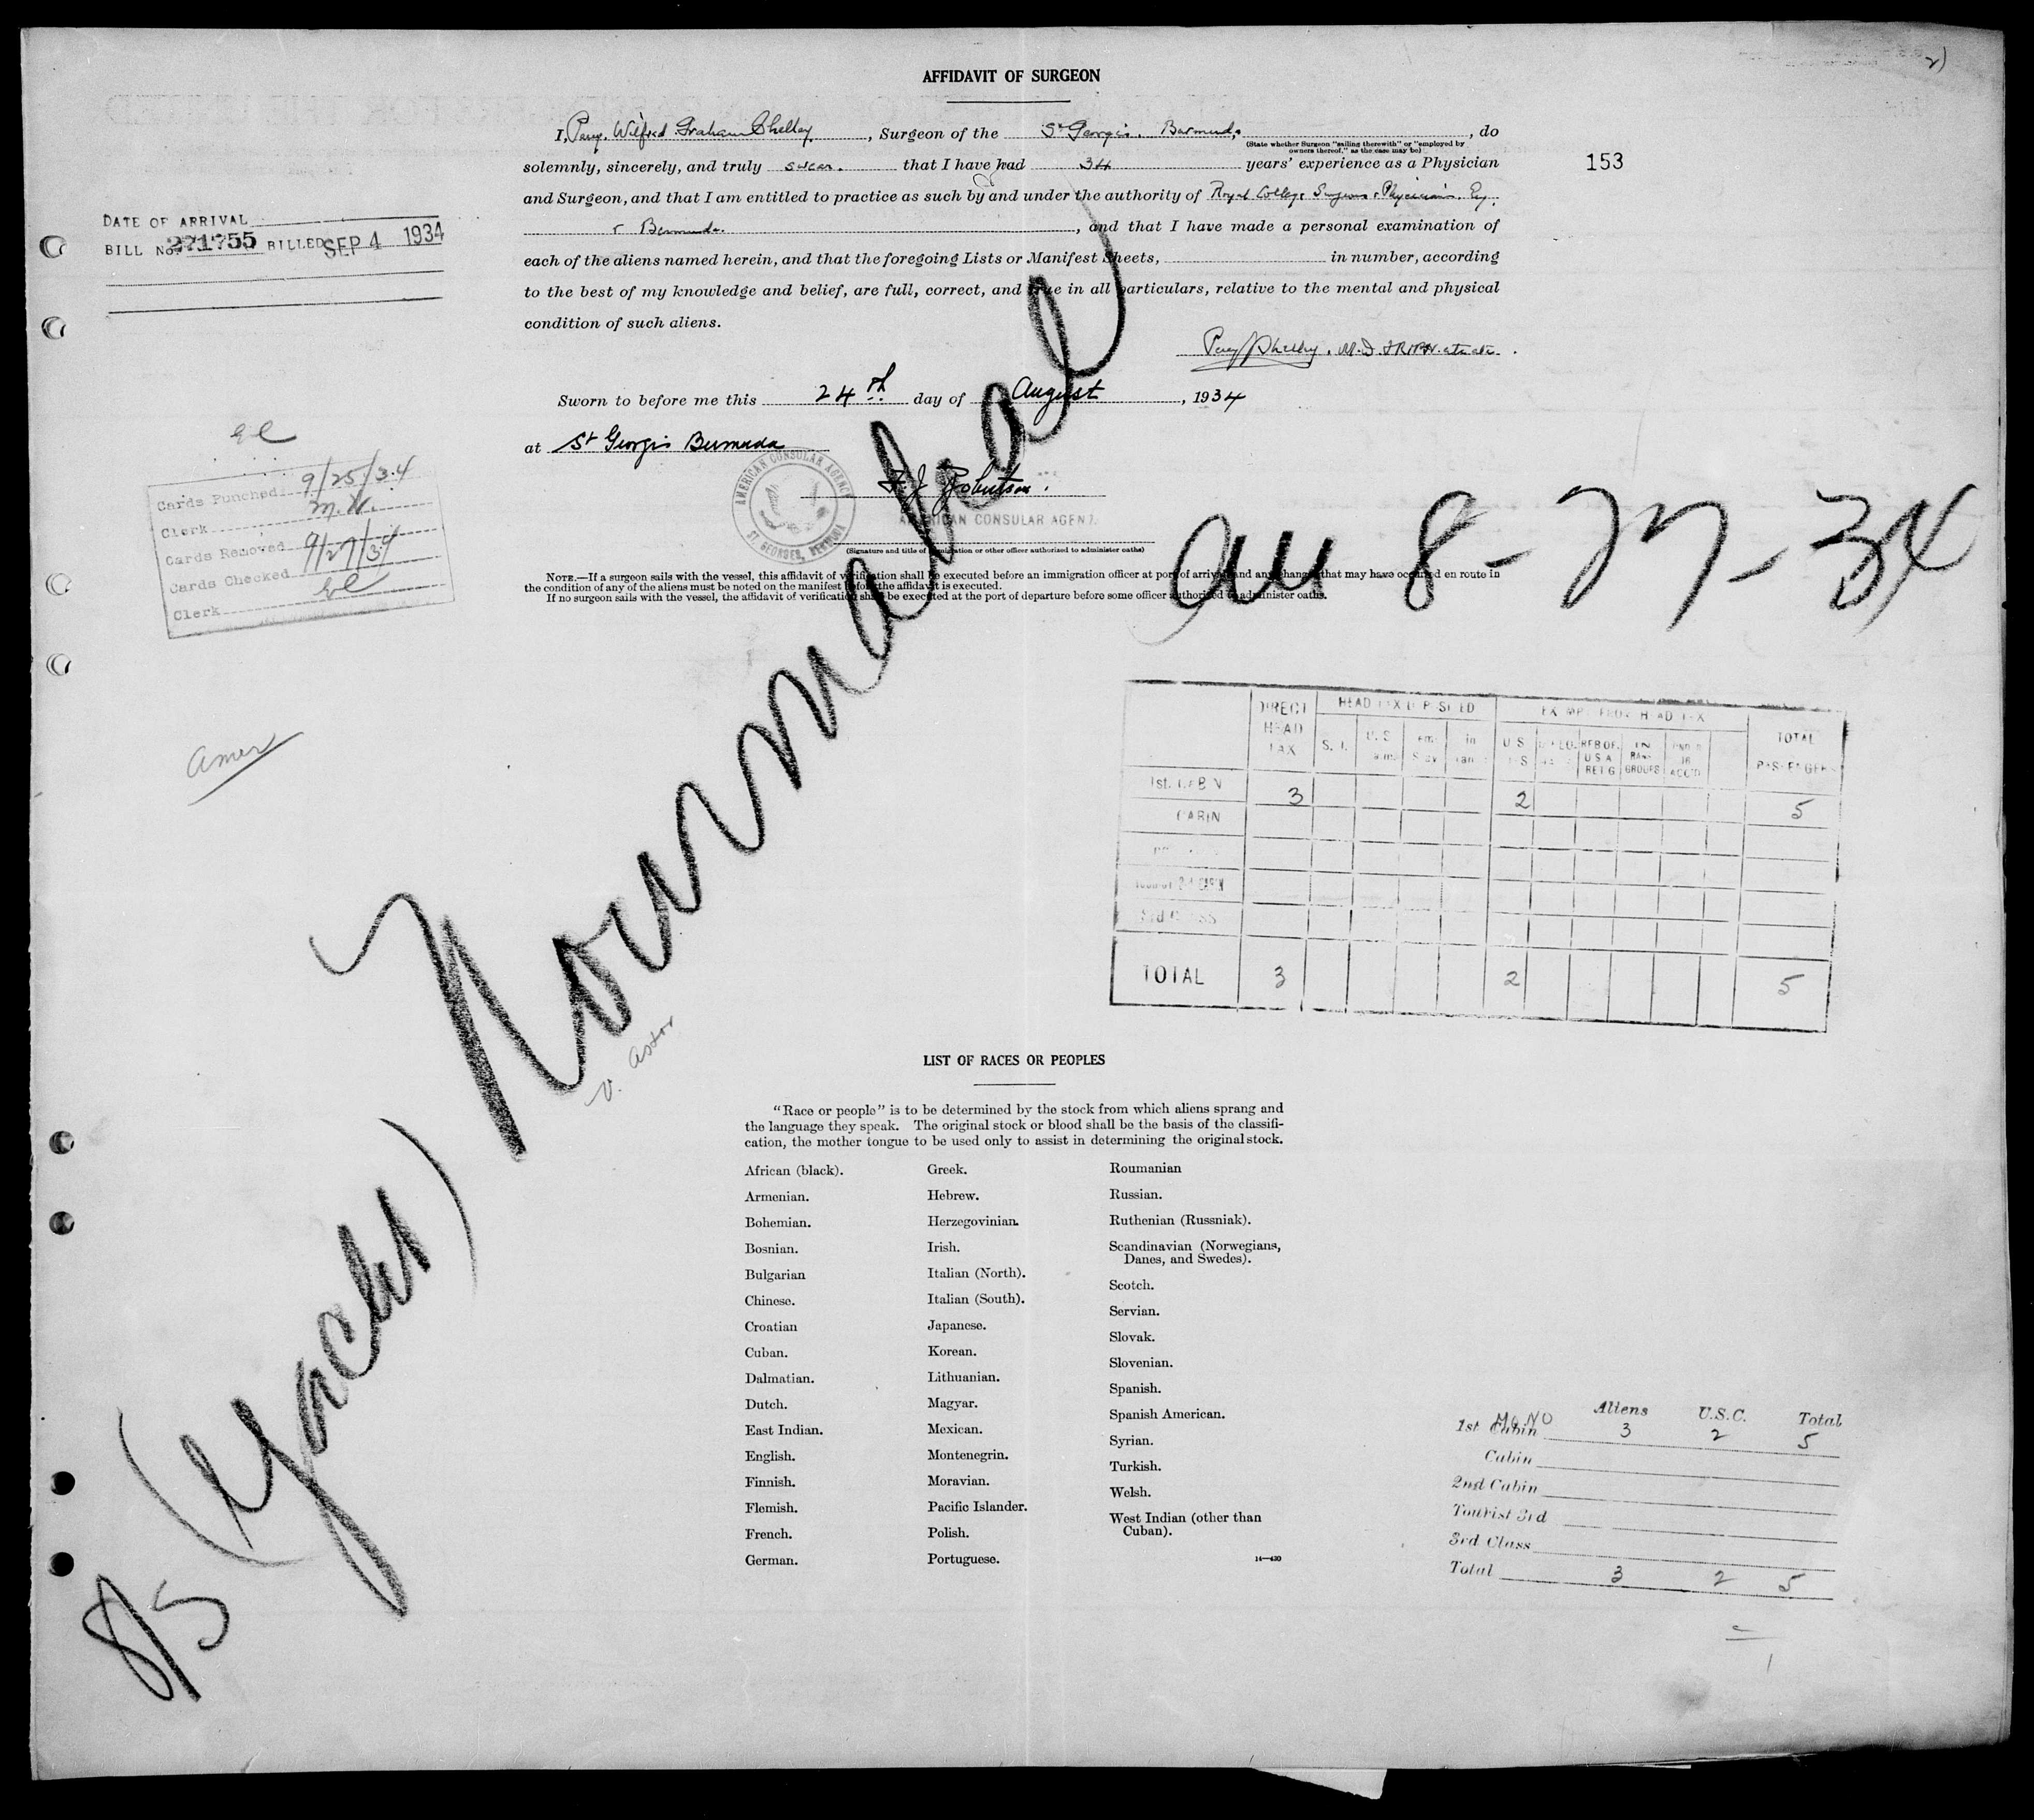 AFFIDAVIT OF SURGEON
I, Percy Wilfred Graham Shelley, Surgeon of the St Georges. Bermuda, do
(State whether Surgeon "sailing therewith" or "employed by
owners thereof," as the case may be)
solemnly, sincerely, and truly swear. that I have had 34 years' experience as a Physician
153
and Surgeon, and that I am entitled to practice as such by and under the authority of Royal College Surgeons & Physicians. Eng.
& Bermuda., and that I have made a personal examination of
each of the aliens named herein, and that the foregoing Lists or Manifest Sheets, in number, according
to the best of my knowledge and belief, are full, correct, and true in all particulars, relative to the mental and physical
condition of such aliens.
DATE OF ARRIVAL
BILL No. 271755 BILLED SEP 4 1934
Percy Shelley. M.D.
Sworn to before me this 24th day of August, 1934
at St Georges Bermuda
F. J. Robertson.
AMERICAN CONSULAR AGENT.
AMERICAN CONSULAR AGENCY
ST. GEORGES, BERMUDA
(Signature and title of immigration or other officer authorized to administer oaths)
NOTE.—If a surgeon sails with the vessel, this affidavit of verification shall be executed before an immigration officer at port of arrival and any changes that may have occurred en route in
the condition of any of the aliens must be noted on the manifest before the affidavit is executed.
If no surgeon sails with the vessel, the affidavit of verification shall be executed at the port of departure before some officer authorized to administer oaths.
Cards Punched 9/25/34
Clerk M.W.
Cards Removed 9/27/34
Cards Checked
Clerk
arr 8-27-34
Amer
S/S (Yacht) Nourmahal
V. Astor
DIRECT HEAD TAX
HEAD TAX DEPOSITED
EXEMPT FROM HEAD TAX
TOTAL PASSENGERS
1st. CABIN 3 2 5
CABIN
TOTAL 3 2 5
LIST OF RACES OR PEOPLES
"Race or people" is to be determined by the stock from which aliens sprang and
the language they speak. The original stock or blood shall be the basis of the classifi-
cation, the mother tongue to be used only to assist in determining the original stock.
African (black).
Armenian.
Bohemian.
Bosnian.
Bulgarian
Chinese.
Croatian
Cuban.
Dalmatian.
Dutch.
East Indian.
English.
Finnish.
Flemish.
French.
German.
Greek.
Hebrew.
Herzegovinian.
Irish.
Italian (North).
Italian (South).
Japanese.
Korean.
Lithuanian.
Magyar.
Mexican.
Montenegrin.
Moravian.
Pacific Islander.
Polish.
Portuguese.
Roumanian
Russian.
Ruthenian (Russniak).
Scandinavian (Norwegians,
Danes, and Swedes).
Scotch.
Servian.
Slovak.
Slovenian.
Spanish.
Spanish American.
Syrian.
Turkish.
Welsh.
West Indian (other than
Cuban).
14—430
Aliens U.S.C. Total
1st Cabin 3 2 5
Cabin
2nd Cabin
Tourist 3rd
3rd Class
Total 3 2 5